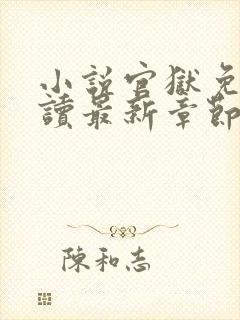 小說官獄免
讀最新章節
陳和志